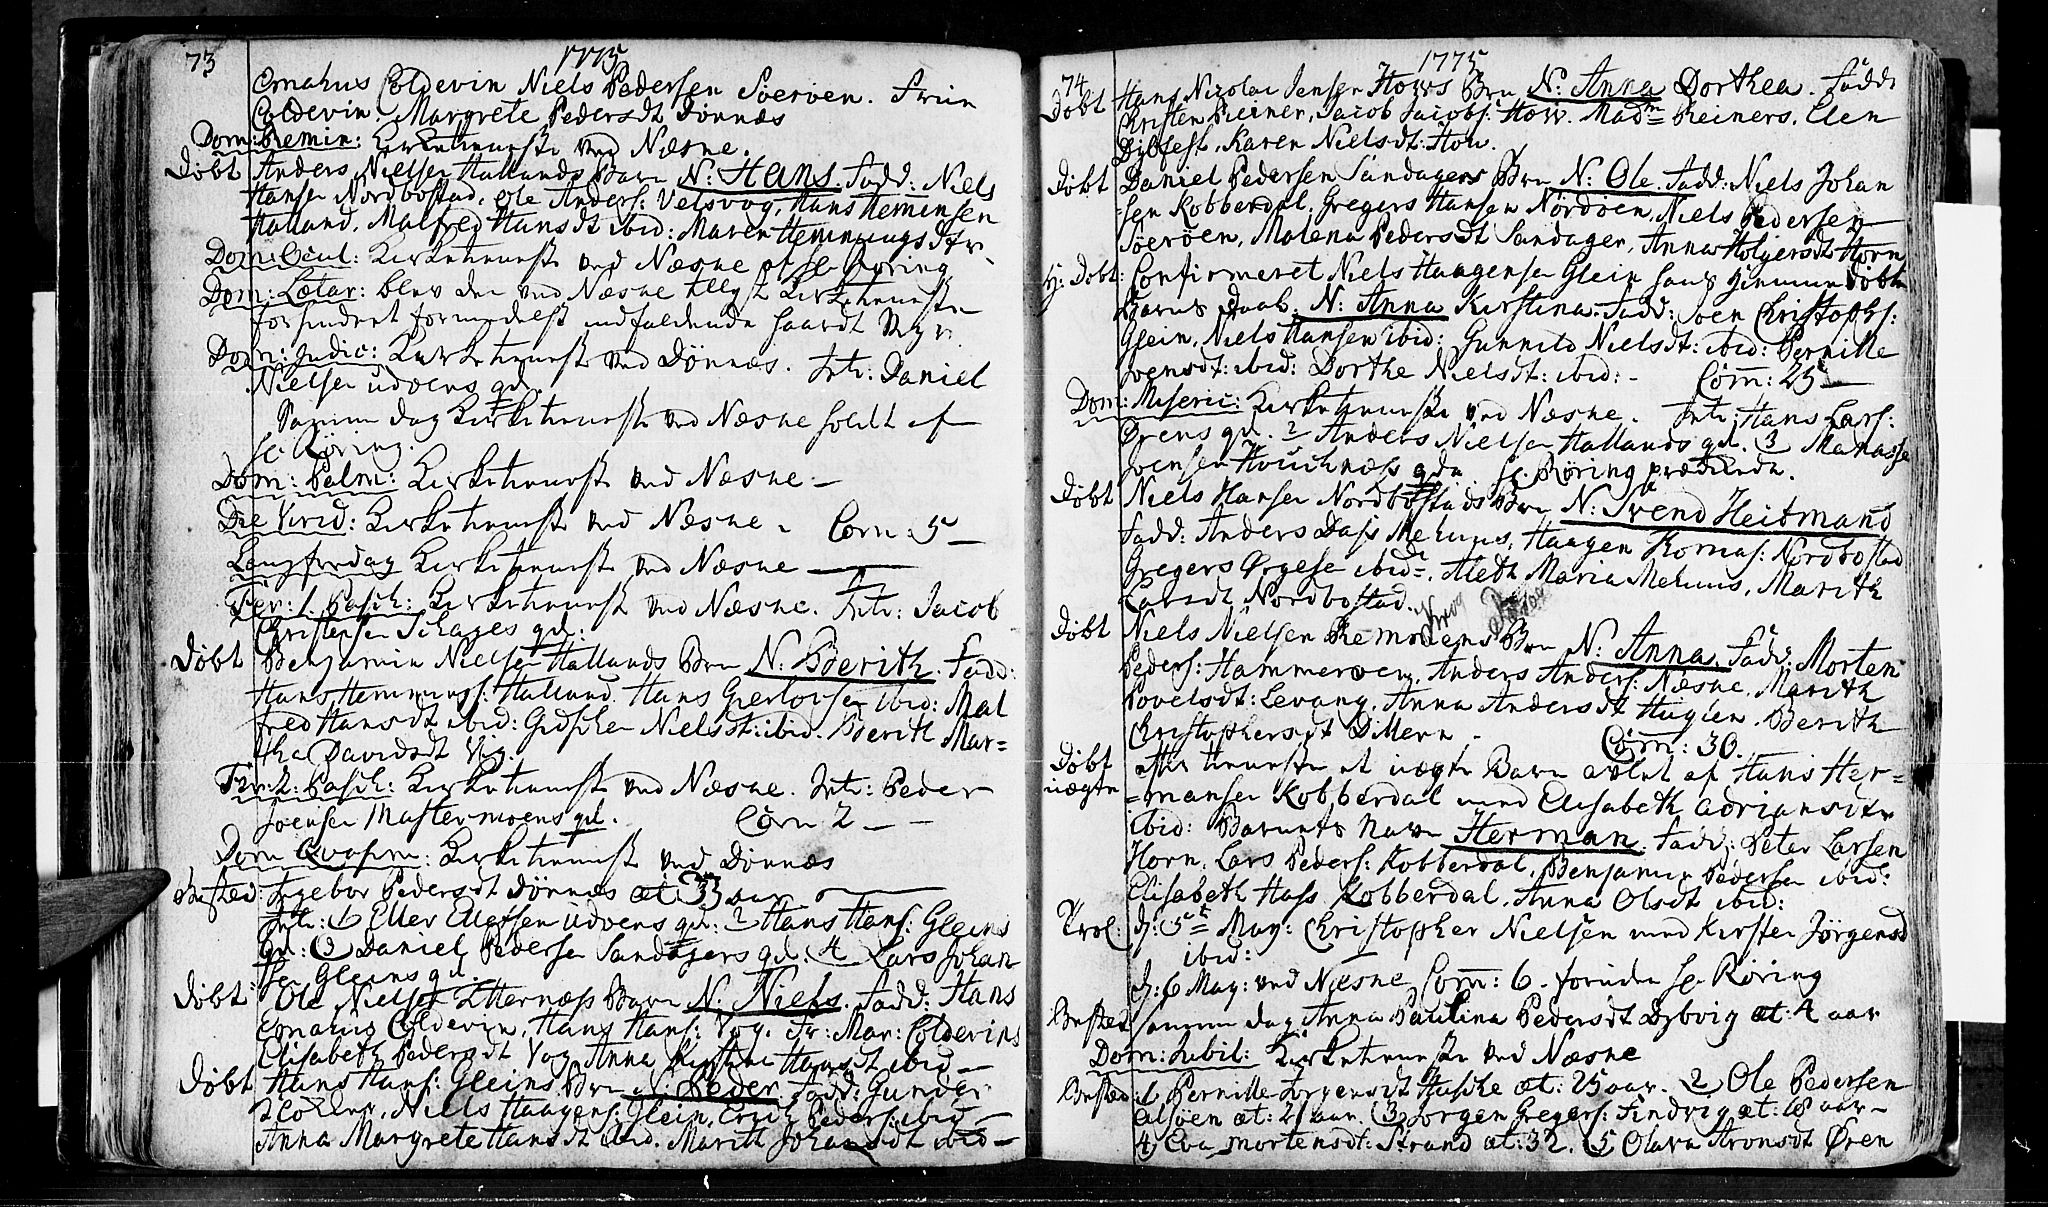 73
1775
Emahus Coldevin Niels Pedersen Söeröen. Fruen
Coldevin. Margrete Pedersdt Dönnes
Dom: Remin: Kirketieneste ved Næsne.
Döbt Anders Nielsen Hallands Barn N: Hans. Fadd: Niels
Hansen Nordbostad, Ole Anders: Velsvog, Hans Hemingsen
Halland, Malfred Hansdt ibid: Maren Hemmingsdtr.
Dom: Ocul: Kirketieneste ved Næsne af Hr Röring
Dom: Lætar: blev den ved Næsne tillyste Kirketieneste
forhindret formedelst indfaldende haardt Veyr.
Dom: Judic: Kirketieneste ved Dönnæs. Intr: Daniel
Nielsen Udvens qd.
Samme dag Kirketieneste ved Næsne holdt af
Hr. Röring.
Dom: Palm: Kirketieneste ved Næsne –
Die Virid: Kirketieneste ved Næsne. Com: 5 –
Langfredag Kirketieneste ved Næsne
Fer: 1. Pasch: Kirketieneste ved Næsne. Intr: Jacob
Christensen Schages qd:
Döbt Benjamin Nielsen Hallands Brn N. Berith. Fadd:
Hans Hemmings: Halland. Hans Gierlovsen ibid: Mal
fred Hansdt ibid: Gidsken Nielsdt: ibid. Berith Mar=
tha Davidsdt Vog.
Fer: 2. Pasch: Kirketieneste ved Næsne. Intr: Peder
Joensen Mastermoens qd. Com 2 – –
Dom Qvasim: Kirketieneste ved Dönnæs
Bested: Ingebor Pedersdt Dönnæs æt 33 aar
Intr: 1 Eller Ellefsen Udvens qd: 2 Hans Hans: Gleins
qd: 3 Daniel Pedersen Sandagers qd: 4 Lars Johan
sen Gleins qd.
Döbt Ole Nielsen Etternæss Barn N. Niels. Fadd: Hans
Emahus Coldevin, Hans Hans: Vog. Fr: Mar: Coldevins
Elisabeth Pedersdt Vog Anna Kirstine Hansdt ibid –
Döbt Hans Hans: Gleins Brn N: Peder Fadd: Gunder
Niels Haagens: Glein, Erich Peders: ibid –
Anna Margrete Hansdt ibid. Marith Johansdt ibid –
74
1775
Döbt Hans Nicolai Jensen Hows Brn N: Anna Dorthea. Fadd:
Christen Reiner, Jacob Jacobs: How. Madm Reiners. Elen
Dybfest, Karen Nielsdt: How.
Döbt Daniel Pedersen Sandagers Brn N: Ole. Fadd: Niels Johan
sen Kobberdal, Gregers Hansen Nordöen, Niels Pedersen
Söeröen, Malena Pedersdt Sandager, Anna Holgersdt Horn
Hj: Döbt: Confirmeret Niels Haagensen Glein hans Hiemme döbte
Barns Daab. N: Anna Kirstina. Fadd: Joen Christophs:
Glein, Niels Hansen ibid: Gunnild Nielsdt: ibid: Pernille
Joensdt: ibid: Dorthe Nielsdt: ibid: – Com: 25 –
Dom: Miseric: Kirketieneste ved Næsne. Intr: Hans Lars:
Örens qd. 2 Anders Nielsen Hallands qd. 3 Manasse
Joensen Houchnæss qde Hr. Röring prædikede.
Döbt Niels Hansen Nordbostads Brn N: Svend Heitmand
Fadd: Anders Dass Mehuus, Haagen Tomas: Nordbostad
Gregers Örgese ibid:, Aleth Maria Mehuus, Marith
Larsdt Nordbostad.
Döbt Niels Nielsen Remmoens Brn N. Anna. Fadd: Morten
Peders: Hammeröen, Anders Anders: Næsne, Marith
Povelsdt: Levang, Anna Andersdt Hugien. Berith
Christophersdt Dillern. Com: 30.
Döbt uægte efter tieneste et uægte Barn avlet af Hans Her=
=mansen Kobberdal med Elisabeth Adriansdtr
ibid: Barnets Navn Herman. Fadd: Peter Larsen
Horn, Lars Peders: Kobberdal, Benjamin Pedersen ibid:
Elisabeth Hass Kobberdal, Anna Olsdt ibid:
Trol: d: 5te May: Christopher Nielsen med Kirsten Jörgensd
ibid:
d: 6 May: ved Næsne Com: 6. foruden Hr Röring
Bested samme dag Anna Paulina Pedersdt Dybvig æt: 4 aar
Dom: Jubil: Kirketieneste ved Næsne
Bested: 1 Pernille Jörgensdt Husche æt: 25 aar. 2 Ole Pedersen
Alsöen æt: 21 aar 3 Jörgen Gregers: Findvig æt: 18 aar –
4 Eva Mortensdt: Strand æt: 32. 5 Olava Aronsdt Ören